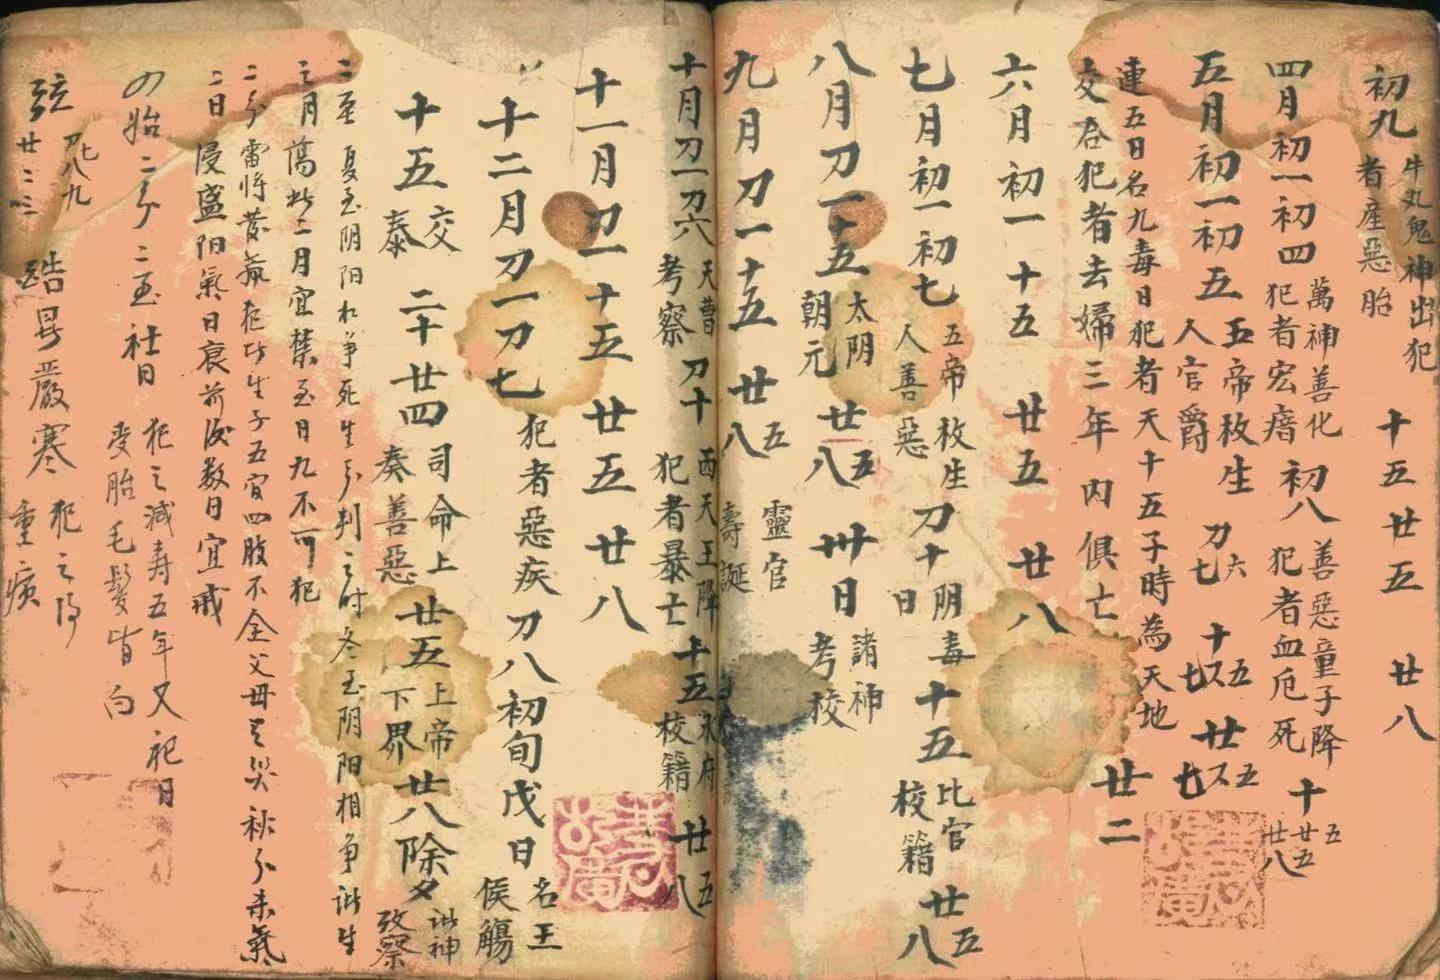 初九 牛丸鬼神出犯者產惡胎 十五 廿五 廿八
四月初一初四 萬神善化犯者宏瘖 初八 善惡童子降犯者血厄死 十五 廿五 廿八
五月初一初五 五帝枚生人官爵
連五日名九毒日犯者天十五子時為天地
交合犯者去婦三年內俱亡 廿二
六月初一 十五 廿五 廿八
七月初一初七 五帝枚生人善惡 刀十 阴毒日 十五 比官校籍 廿五 廿八
八月刀一十五 太阴朝元 廿五 廿八 卅日 諸神考校
九月刀一十五 廿五 廿八 靈官壽誕
十月刀一刀六 天曹考察 刀十 西天王降犯者暴亡 十五 水府校籍 廿五 廿八
十一月刀一十五 廿五 廿八
十二月刀一刀七 犯者惡疾 刀八初旬戊日 名王侯觴
十五 交泰 二十廿四 司命上奏善惡 廿五 上帝下界 廿八除夕 諸神攷察
二至 夏至阴阳相争死生分判之时冬至阴阳相争諸生
之月蕩 二月宜禁至日九不可犯
二分雷將發 犯 生子五官四肢不全父母 災秋分杀氣
二日侵盛阳氣日衰前後数日宜戒
始二分二至社日 犯之減寿五年又祀日受胎毛髮皆白
弦 刀七八九 廿二三 晧 嚴寒 犯之 重